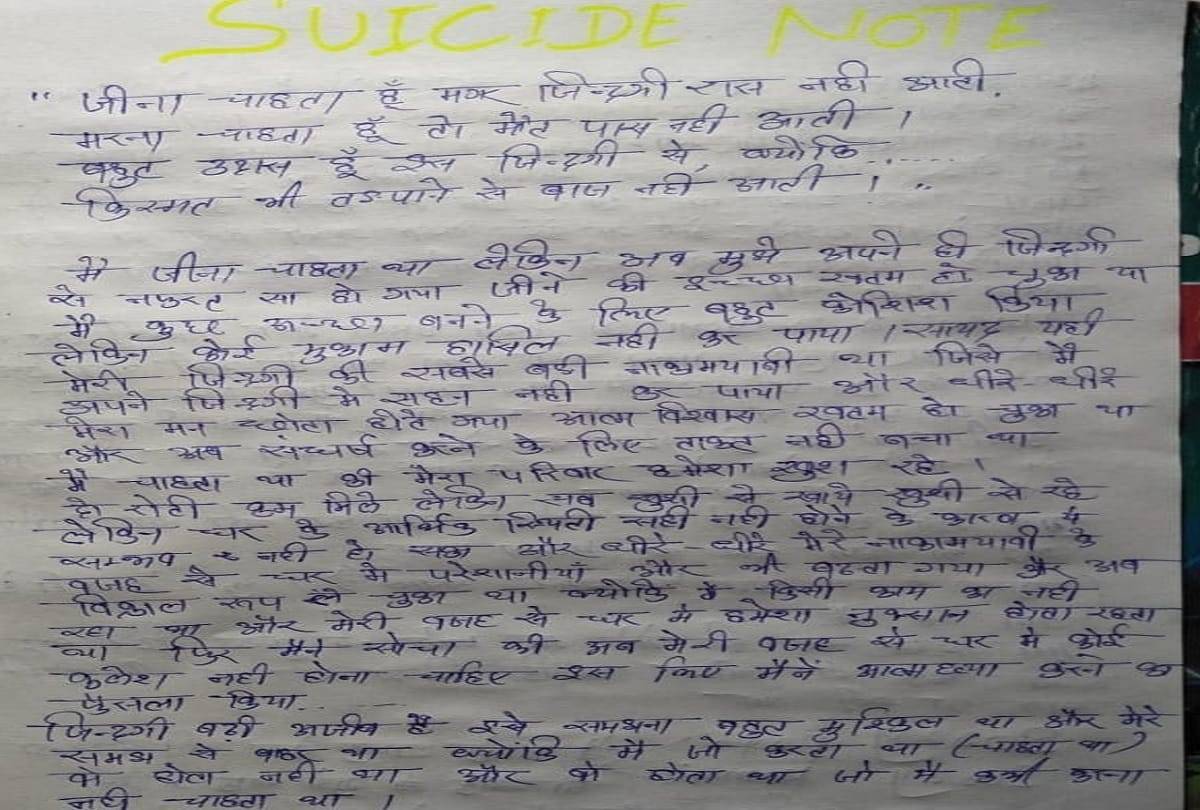 SUICIDE NOTE
" जीना चाहता हूँ मगर जिन्दगी रास नही आती.
मरना चाहता हूँ तो मौत पास नही आती ।
बहुत उदास हूँ इस जिन्दगी से, क्योकि.......
किस्मत भी तडपाने से बाज नही आती । "
मै जीना चाहता था लेकिन अब मुझे अपने ही जिन्दगी
से नफरत सा हो गया जीने की इच्छा खतम हो चुका था
मै कुछ अच्छा बनने के लिए बहुत कोशिश किया
लेकिन कोई मुकाम हासिल नही कर पाया । सायद यही
मेरी जिन्दगी की सबसे बडी नाकामयाबी था जिसे मै
अपने जिन्दगी मे सहन नही कर पाया और धीरे-धीरे
मेरा मन छोटा होते गया आत्म विश्वास खतम हो चुका था
और अब संघर्ष करने के लिए ताकत नही बचा था
मै चाहता था की मेरा परिवार हमेशा खुश रहे ।
दो रोटी कम मिले लेकिन सब खुशी से खाये खुशी से रहे
लेकिन घर के आर्थिक स्थिती सही नही होने के कारण ये
सम्भव नही हो सका और धीरे-धीरे मेरे नाकामयाबी के
वजह से घर मे परेशानीयाँ और भी बढता गया और अब
विक्राल रूप ले चुका था क्योकि मै किसी काम का नही
रहा था और मेरी वजह से घर मे हमेशा नुक्सान होता रहता
था फिर मैने सोचा की अब मेरी वजह से घर मे कोई
कलेश नही होना चाहिए इस लिए मैनें आत्महत्या करने क
फैसला किया..
जिन्दगी बडी अजीब है इसे समझना बहुत मुश्किल था और मेरे
समझ से बाहर था क्योंकि मै जो करता था (चाहता था)
वो होता नही था और वो होता था जो मै कभी करना
नही चाहता था ।